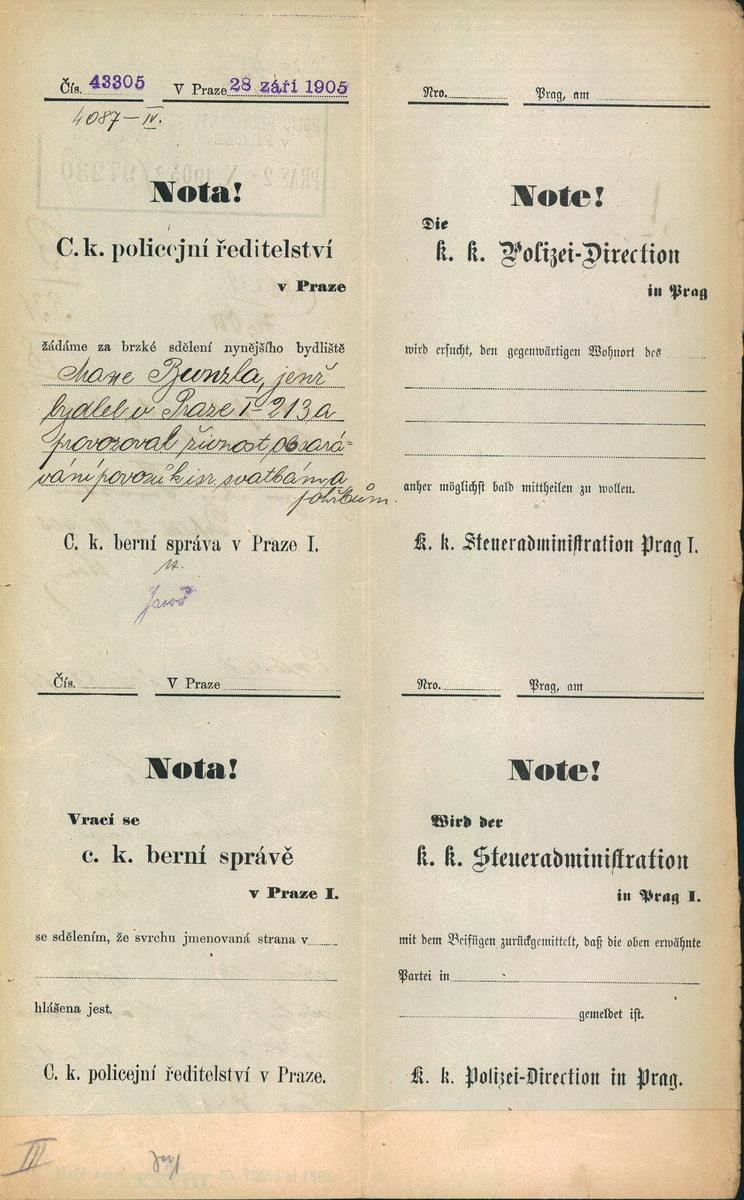 Čís. 43305 V Praze 28 září 1905
4087-IV.
Nota!
C. k. policejní ředitelství
v Praze
žádáme za brzké sdělení nynějšího bydliště
Maxe Bunzla, jenž
bydlel v Praze I-213a
provozoval živnost obsará-
vání povozů k svatbám a
pohřbům.
C. k. berní správa v Praze I.
Čís. V Praze
Nota!
Vrací se
c. k. berní správě
v Praze I.
se sdělením, že svrchu jmenovaná strana v
hlášena jest.
C. k. policejní ředitelství v Praze.
III
Nro. Prag, am
Note!
Die
k. k. Polizei-Direction
in Prag
wird ersucht, den gegenwärtigen Wohnort des
anher möglichst bald mittheilen zu wollen.
K. k. Steueradministration Prag I.
Nro. Prag, am
Note!
Wird der
k. k. Steueradministration
in Prag I.
mit dem Beifügen zurückgemittelt, daß die oben erwähnte
Partei in
gemeldet ist.
K. k. Polizei-Direction in Prag.